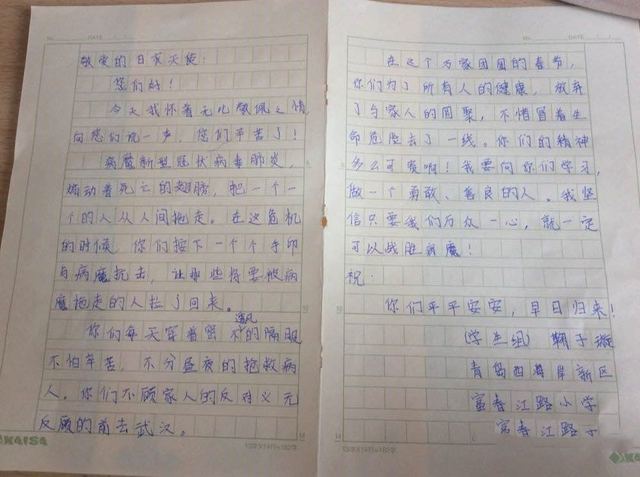 敬爱的白衣天使：
您们好！
今天我怀着无比敬佩之情
向您们说一声，您们辛苦了！
病魔新型冠状病毒肺炎，
煽动着死亡的翅膀，把一个一
个的人从人间拖走。在这危机
的时候，你们按下一个个手印
与病魔抗击，让那些将要被病
魔拖走的人拉了回来。
你们每天穿着密不透风的隔服
不怕辛苦，不分昼夜的抢救病
人。你们不顾家人的反对义无
反顾的前去武汉。
KAISA
在这个万家团圆的春节，
你们为了所有人的健康，放弃
了与家人的团聚，不惜冒着生
命危险去了一线。你们的精神
多么可贵啊！我要向你们学习，
做一个勇敢、善良的人。我坚
信只要我们万众一心，就一定
可以战胜病魔！
祝：
你们平平安安，早日归来！
(学生组) 鞠子璇
青岛西海岸新区
富春江路小学
富春江路